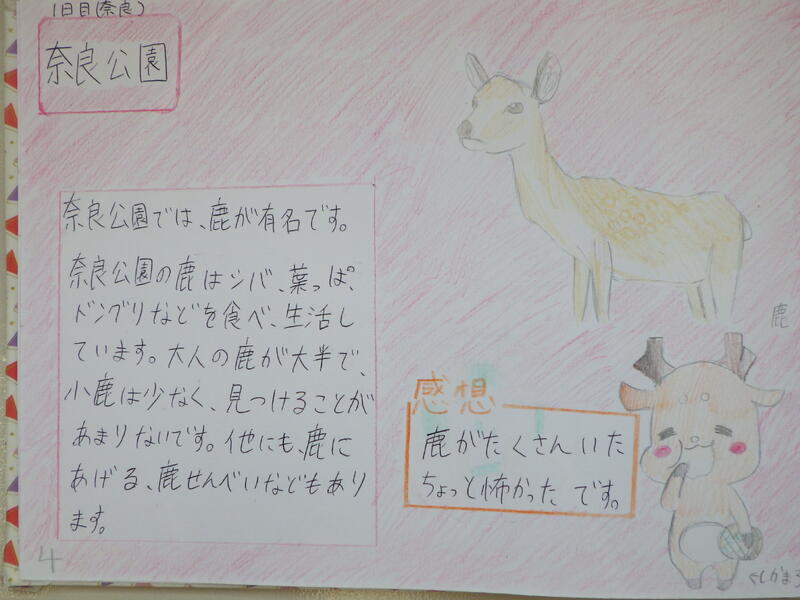 1日目(奈良)
奈良公園
奈良公園では、鹿が有名です。
奈良公園の鹿はシバ、葉っぱ、
ドングリなどを食べ、生活し
ています。大人の鹿が大半で、
小鹿は少なく、見つけることが
あまりないです。他にも、鹿に
あげる、鹿せんべいなどもあり
ます。
鹿
感想
鹿がたくさんいた
ちょっと怖かったです。
しかまろ
4